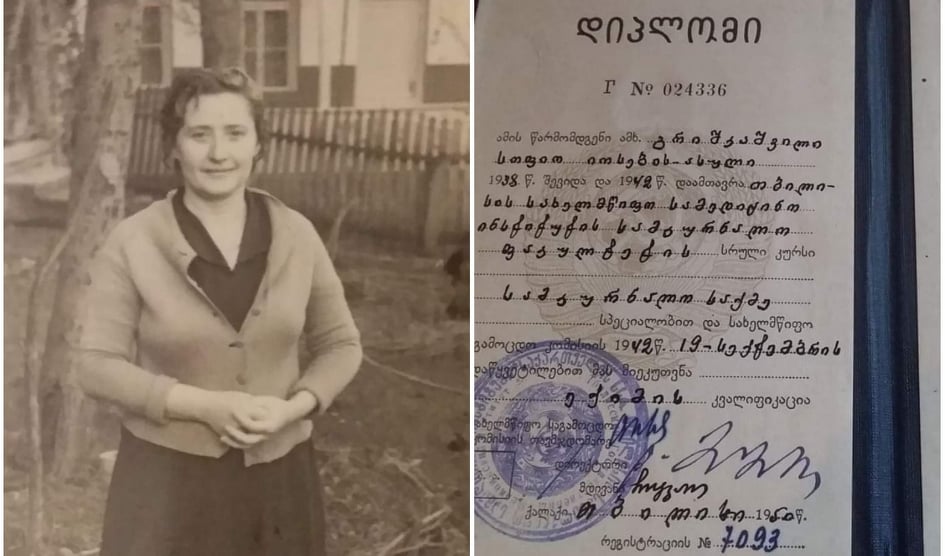 დიპლომი
Г № 024336
ამის წარმომდგენი ამხ. გრიშკაშვილი
სოფიო იოსების-ასული
1938 წ. შევიდა და 1942 წ. დაამთავრა თბილი-
სის სახელმწიფო სამედიცინო
ინსტიტუტის სამკურნალო
ფაკულტეტის სრული კურსი
სამკურნალო საქმე
სპეციალობით და სახელმწიფო
გამოცდო კომისიის 1942 წ. 19-სექტემბრის
დაწყვეტილებით მას მიეკუთვნა
ექიმის კვალიფიკაცია
სახელმწიფო საგამოცდო
კომისიის თავმჯდომარე
დირექტორი
მდივანი
ქალაქი თბილისი 19 წ.
რეგისტრაციის № 7093